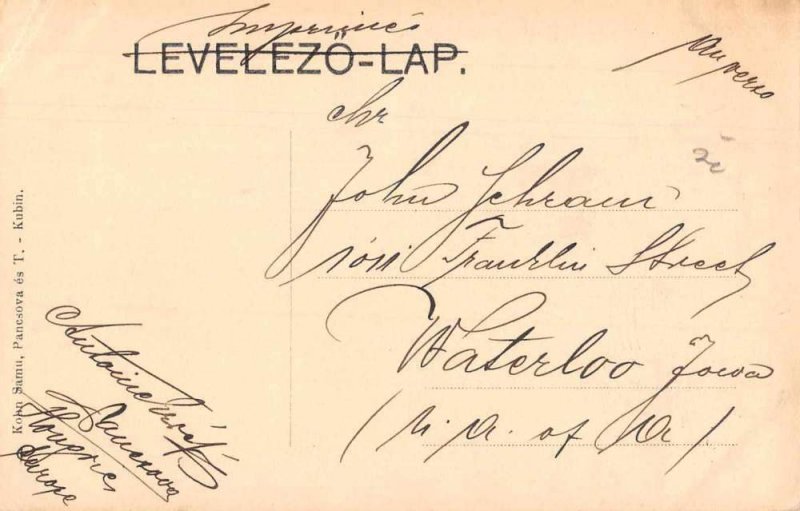 Imprimés
LEVELEZŐ-LAP.
au verso
chr
John Schram
1011 Franklin Street
Waterloo Iowa
(U. A. of A)
Kohn Samu, Pancsova és T. - Kubin.
Antoine
Pancsova
Hongrie
Europe